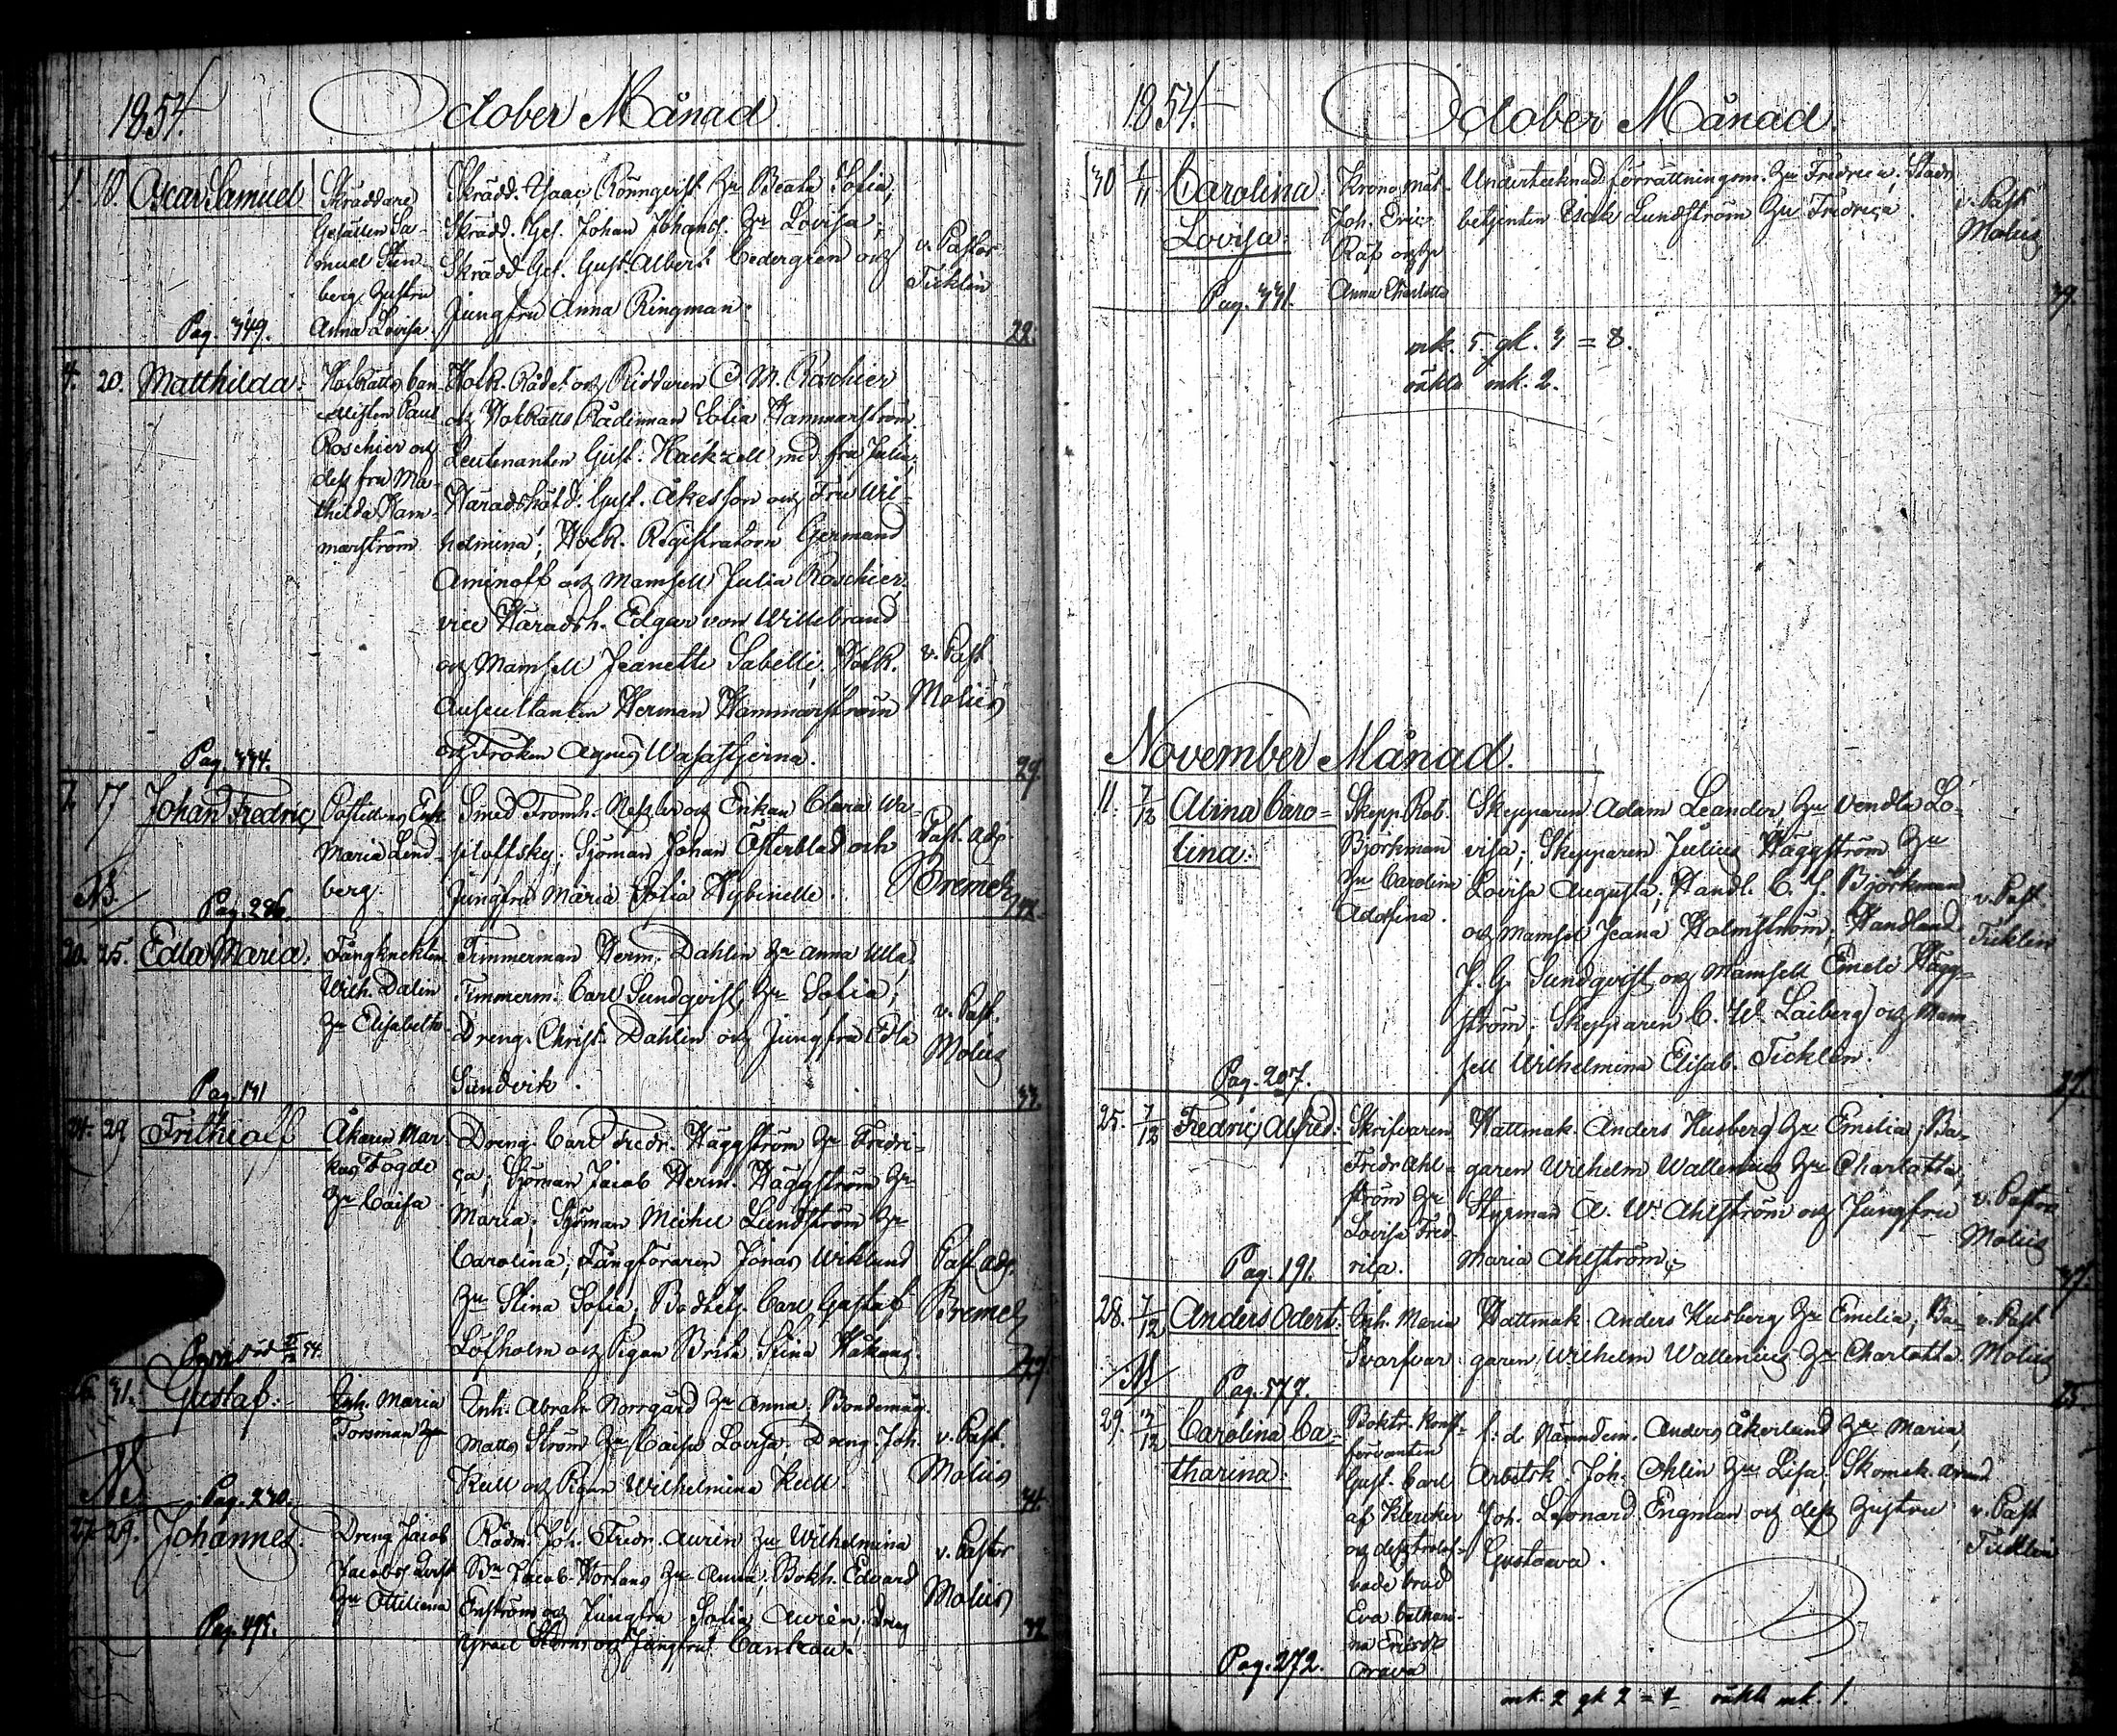 1854. October Månad.
1. 18. Oscar Samuel
Skräddare
Gesällen Sa-
muel Sten-
berg, hustru
Anna Lovisa
Pag. 349.
Skrädd. Isaac Rönnqvist Hu Beata Sofia;
Skrädd. Ges. Johan Johans. Hu Lovisa;
Skrädd. Ges. Gust. Albert Cedergren och
Jungfru Anna Ringman.
v. Pastor
Ticklén
22.
4. 20. Matthilda:
HofRätts Can-
cellisten Paul
Roschier och
dess fru Ma-
thilda Ham-
marström
Pag. 334.
HofR. Rådet och Riddaren C. M. Roschier
och HofRätts Rådinnan Sofia Hammarström.
Leutenanten Gust. Häckzell med fru Julia;
Häradshöfd. Gust. Åkesson och Fru Wil-
helmina; HofR. Registratorn Germand
Aminoff och Mamsell Julia Roschier,
vice Häradsh. Edgar von Willebrand
och Mamsell Jeanette Sabelli; HofR.
Auscultanten Herman Hammarström
och Fröken Agnes Wasastjerna.
v. Past
Molius
29.
7. 17 Johan Fredric
Enk.
Maria Lind-
berg.
Pag. 286.
Smed Fromh. Nessler och Enkan Clara Wa-
sploffsky; Sjöman Johan Österblad och
Jungfru Maria Sofia Nybinelle.
Past. adj.
Bremer
20. 25. Edla Maria:
Fångknekten
Wilh. Dalin
Hu Elisabeth.
Pag. 131
Timmerman Herm. Dahlin Hu Anna Ulla,
Timmerm. Carl Sundqvist, Hu Sofia;
Dreng. Christ. Dahlin och Jungfru Edla
Sundvik.
v. Past.
Molius
33.
24. 29 Frithiolf
Åkaren Mar-
kus Fogde
Hu Caisa
död 54.
Dreng. Carl Fredr. Häggström Hu Fredri-
ca; Sjöman Jacob Herm. Häggström Hu
Maria; Sjöman Michel Lundström Hu
Carolina; Fångföraren Jonas Wiklund
Hu Stina Sofia; Carl Gustaf
Löfholm och Pigan Brita Stina Håkans.
Past. adj.
Bremer
31. Gustaf:
Inh. Maria
Torsman
Pag. 230.
Inh. Abrah. Norrgård Hu Anna; Bondemåg.
Matts Ström Hu Caisa Lovisa. Dreng. Joh.
Kull och Pigan Wilhelmina Kull.
v. Past.
Molius
27. 29. Johannes.
Dreng Jacob
Jacobs. Qvist
Hu Ottiliana
Pag. 495.
Rådm. Joh. Fredr. Aurén Hu Wilhelmina
Bn Jacob Hortans Hu Anna; Bokh. Edvard
Enström och Jungfru Sofia Aurén; Dreng
och Jungfru
v. Pastor
Molius
1854. October Månad.
30 Carolina
Lovisa:
Krono
Joh. Eric
Räf
Anna Charlotta
Pag. 331.
Undertecknad förrättningsm. Hu Fredrica; Stads
betjenten Isak Lundström Hu Fredrica.
v. Past
Molius
39.
mk. 5. qk. 3 = 8.
oäkta mk. 2.
November Månad.
11. 7/12 Alina Caro-
lina:
Skepp. Rob.
Björkman
Hu Carolina
Adolfina.
Pag. 207.
Skepparen Adam Leander, Hu Vendla Lo-
visa; Skepparen Julius Häggström Hu
Lovisa Augusta; Handl. C. G. Björkman
och Mamsel Jeana Holmström; Handland.
J. G. Sundqvist och Mamsell Emeli Hägg-
ström; Skepparen C. W. Laiberg och Mam-
sell Wilhelmina Elisab. Ticklén.
v. Past.
Ticklén
27.
25. 7/12 Fredric Alfred:
Skrifvaren
Fredr Ahl-
ström Hu
Lovisa Fred-
rica.
Pag. 191.
Hattmak. Anders Husberg Hu Emelia; Ba-
garen Wilhelm Wallenius Hu Charlotta,
Styrman A. W. Ahlström och Jungfru
Maria Ahlström.
v. Pastor
Molius
37.
28. 7/12 Anders Odert:
Inh. Maria
Svarfvar
Pag. 577.
Hattmak. Anders Husberg Hu Emelia; Ba-
garen Wilhelm Wallenius Hu Charlotta.
v. Past
Molius
25.
29. Carolina Ca-
tharina:
Boktr. Konst-
förvanten
Gust. Carl
af Klercker
och dess trolof-
vade brud
Eva Cathari-
na Ericsdr
Prava
Pag. 272.
f. d. Nämndem. Anders Åkerlund Hu Maria,
Arbetsk. Joh. Ohlin Hu Lisa; Skomak.
Joh. Leonard Engman och dess hustru
Gustaava.
v. Past
Ticklén
mk. 2 qk 2 = 4 oäkta mk. 1.